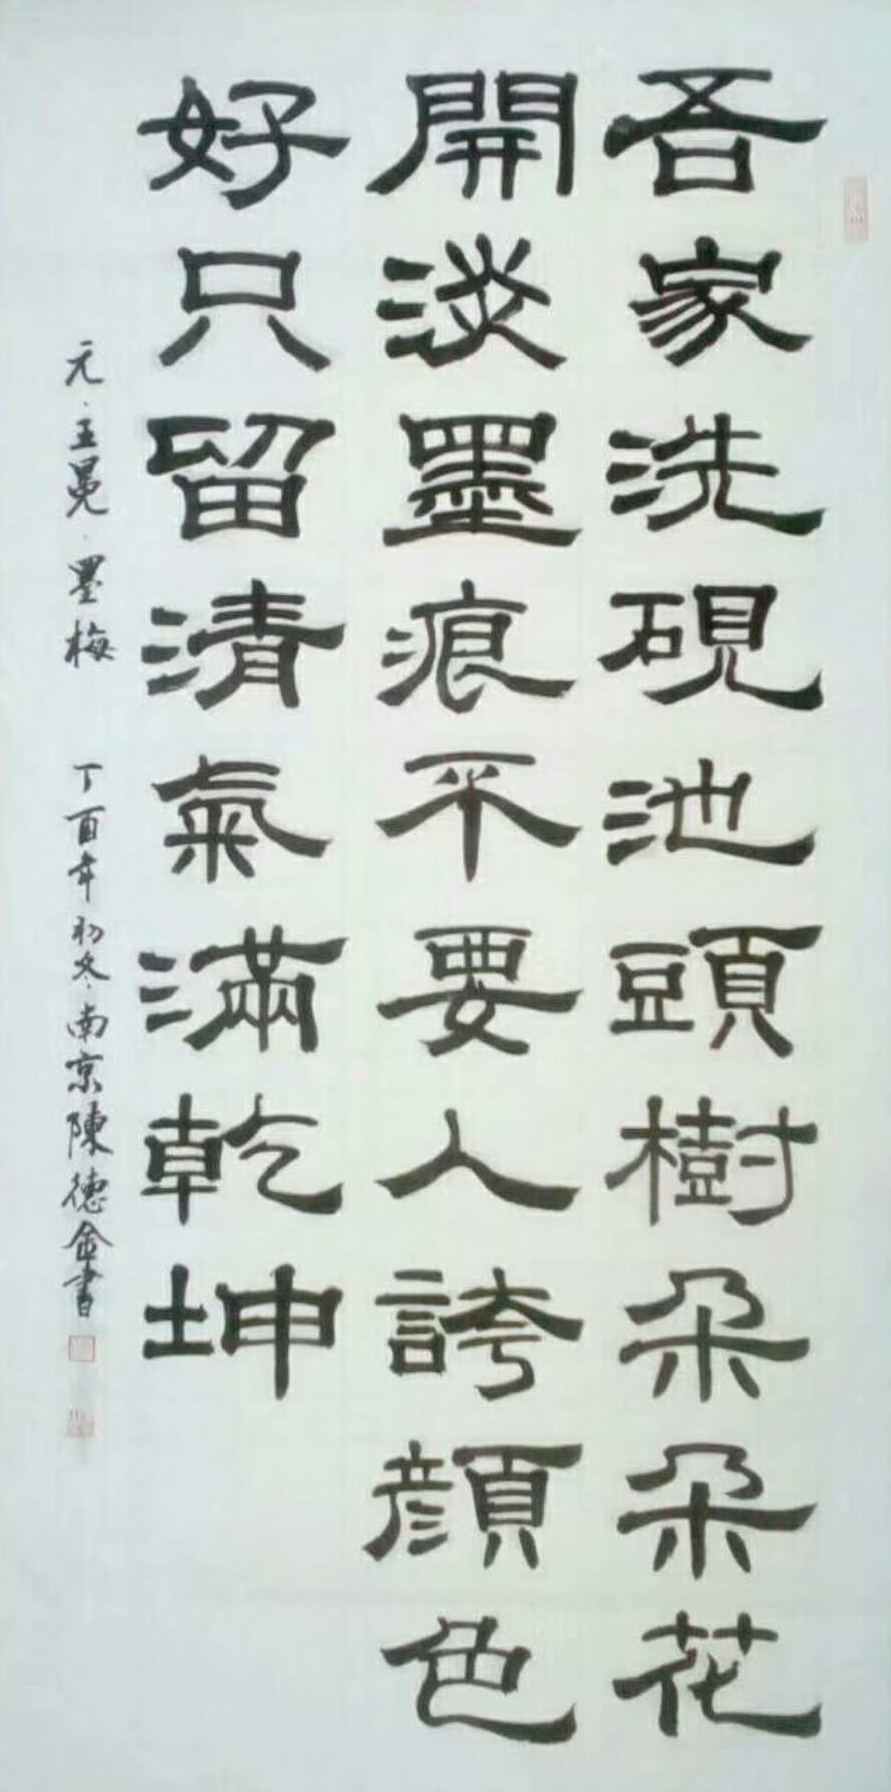 吾家洗硯池頭樹朵朵花
開淡墨痕不要人誇顏色
好只留清氣滿乾坤
元·王冕·墨梅 丁酉年初冬·南京陳德金書